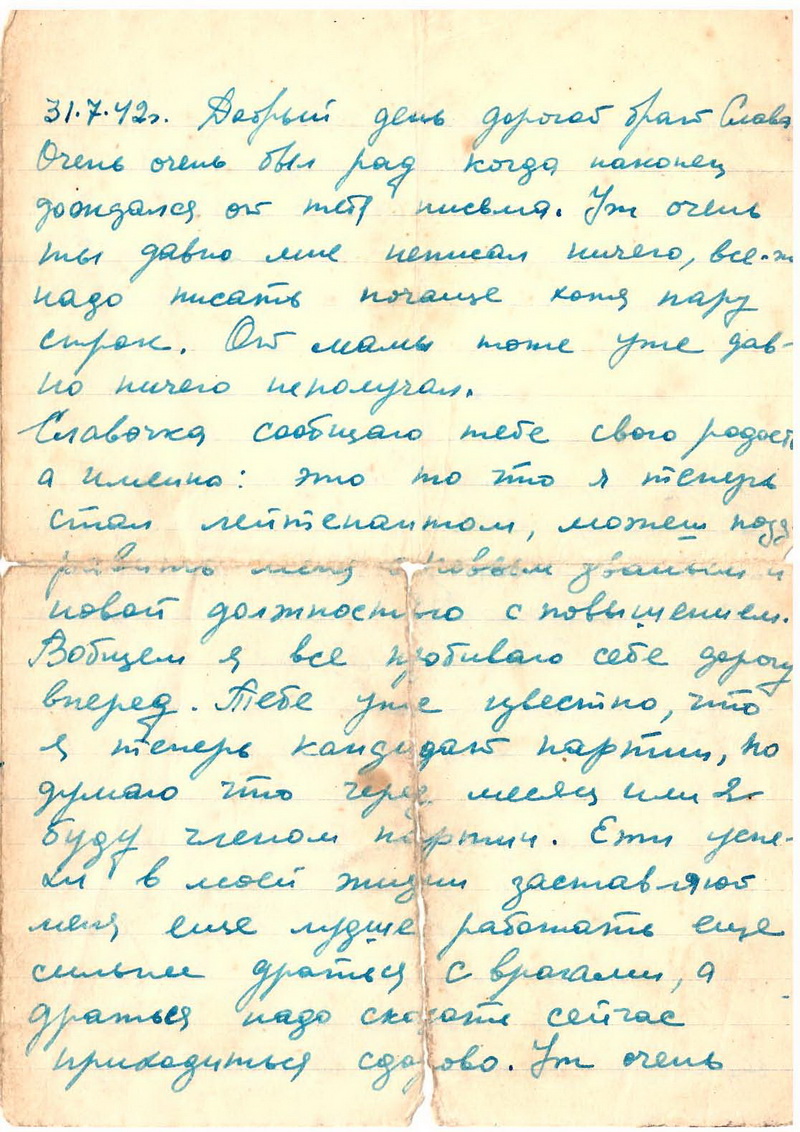 31.7.42г. Добрый день дорогой брат Слава
Очень очень был рад когда наконец
дождался от тебя письма. Уж очень
ты давно мне неписал ничего, все-ж
надо писать почаще хотя пару
строк. От мамы тоже уже дав-
но ничего неполучал.
Славочка сообщаю тебе свою радость
а именно: это то что я теперь
стал лейтенантом, можеш позд-
равить меня с новым званьем и
новой должностью с повышением.
Вобщем я все пробиваю себе дорогу
вперед. Тебе уже известно, что
я теперь кандидат партии, но
думаю что через месяц или 2
буду членом партии. Эти успе-
хи в моей жизни заставляют
меня еще лудше работать еще
сильнее драться с врагами, а
драться надо сказать сейчас
приходиться здорово. Уж очень